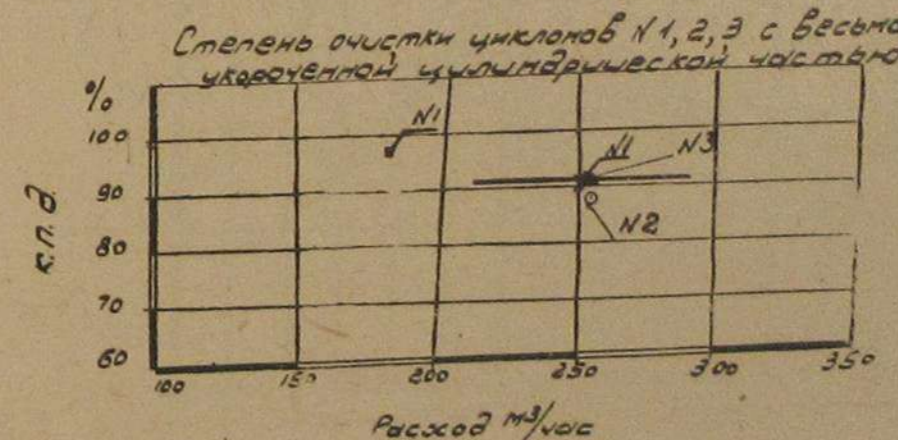 Степень очистки циклонов N1, 2, 3 с весьма
укороченной цилиндрической частью
%
100
90
80
70
60
к.п.д.
N1
N1
N3
N2
100
150
200
250
300
350
Расход м3/час